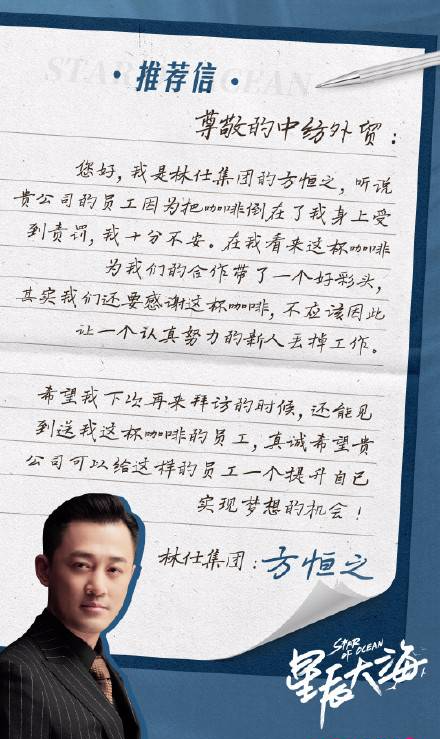 STAR OF OCEAN
·推荐信·
尊敬的中纺外贸：
您好，我是林仕集团的方恒之，听说
贵公司的员工因为把咖啡倒在了我身上受
到责罚，我十分不安。在我看来这杯咖啡
为我们的合作带了一个好彩头，
其实我们还要感谢这杯咖啡，不应该因此
让一个认真努力的新人丢掉工作。
希望我下次再来拜访的时候，还能见
到送我这杯咖啡的员工，真诚希望贵
公司可以给这样的员工一个提升自己
实现梦想的机会！
林仕集团：方恒之
STAR
OF OCEAN
星辰大海